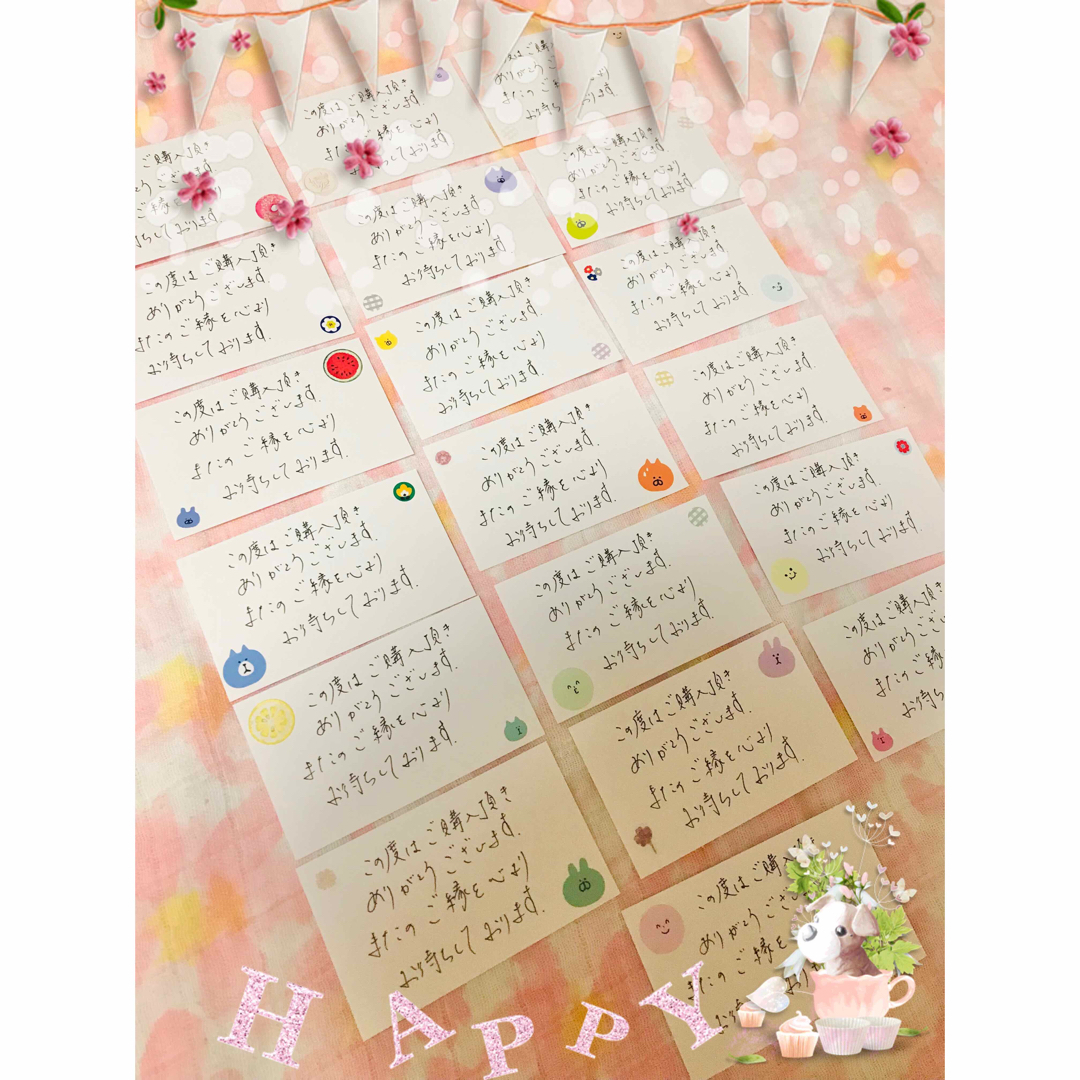 ご購入頂き
とうございます。
ご縁を心より
待ちしております。
この度はご購入頂き
ありがとうございます。
またのご縁を心より
お待ちしております。
この度はご購入頂き
ありがとうございます。
またのご縁を心より
お待ちしております。
この度はご購入頂き
ありがとうございます。
またのご縁を心より
お待ちしております。
この度はご購入頂き
ありがとうございます。
またのご縁を心より
お待ちしております。
この度はご購入頂き
ありがとうございます。
またのご縁を心より
お待ちしております。
この度はご購入頂き
ありがとうございます。
またのご縁を心より
お待ちしております。
この度はご購入頂き
ありがとうございます。
またのご縁を心より
お待ちしております。
この度はご購入頂き
ありがとうございます。
またのご縁を心より
お待ちしております。
この度はご購入頂き
ありがとうございます。
またのご縁を心より
お待ちしております。
この度はご購入頂き
ありがとうございます。
またのご縁を心より
お待ちしております。
この度はご購入頂き
ありがとうございます。
またのご縁を心より
お待ちしております。
この度はご購入頂き
ありがとうございます。
またのご縁を心より
お待ちしております。
この度はご購入頂き
ありがとうございます。
またのご縁を心より
お待ちしております。
この度はご購入頂き
ありがとうございます。
またのご縁を心より
お待ちしております。
この度はご購入頂き
ありがとうございます。
またのご縁を心より
お待ちしております。
この度はご購入
ありがとうござ
またのご縁
お待ちし
この度はご購入
ありがとうご
またのご縁を
HAPPY